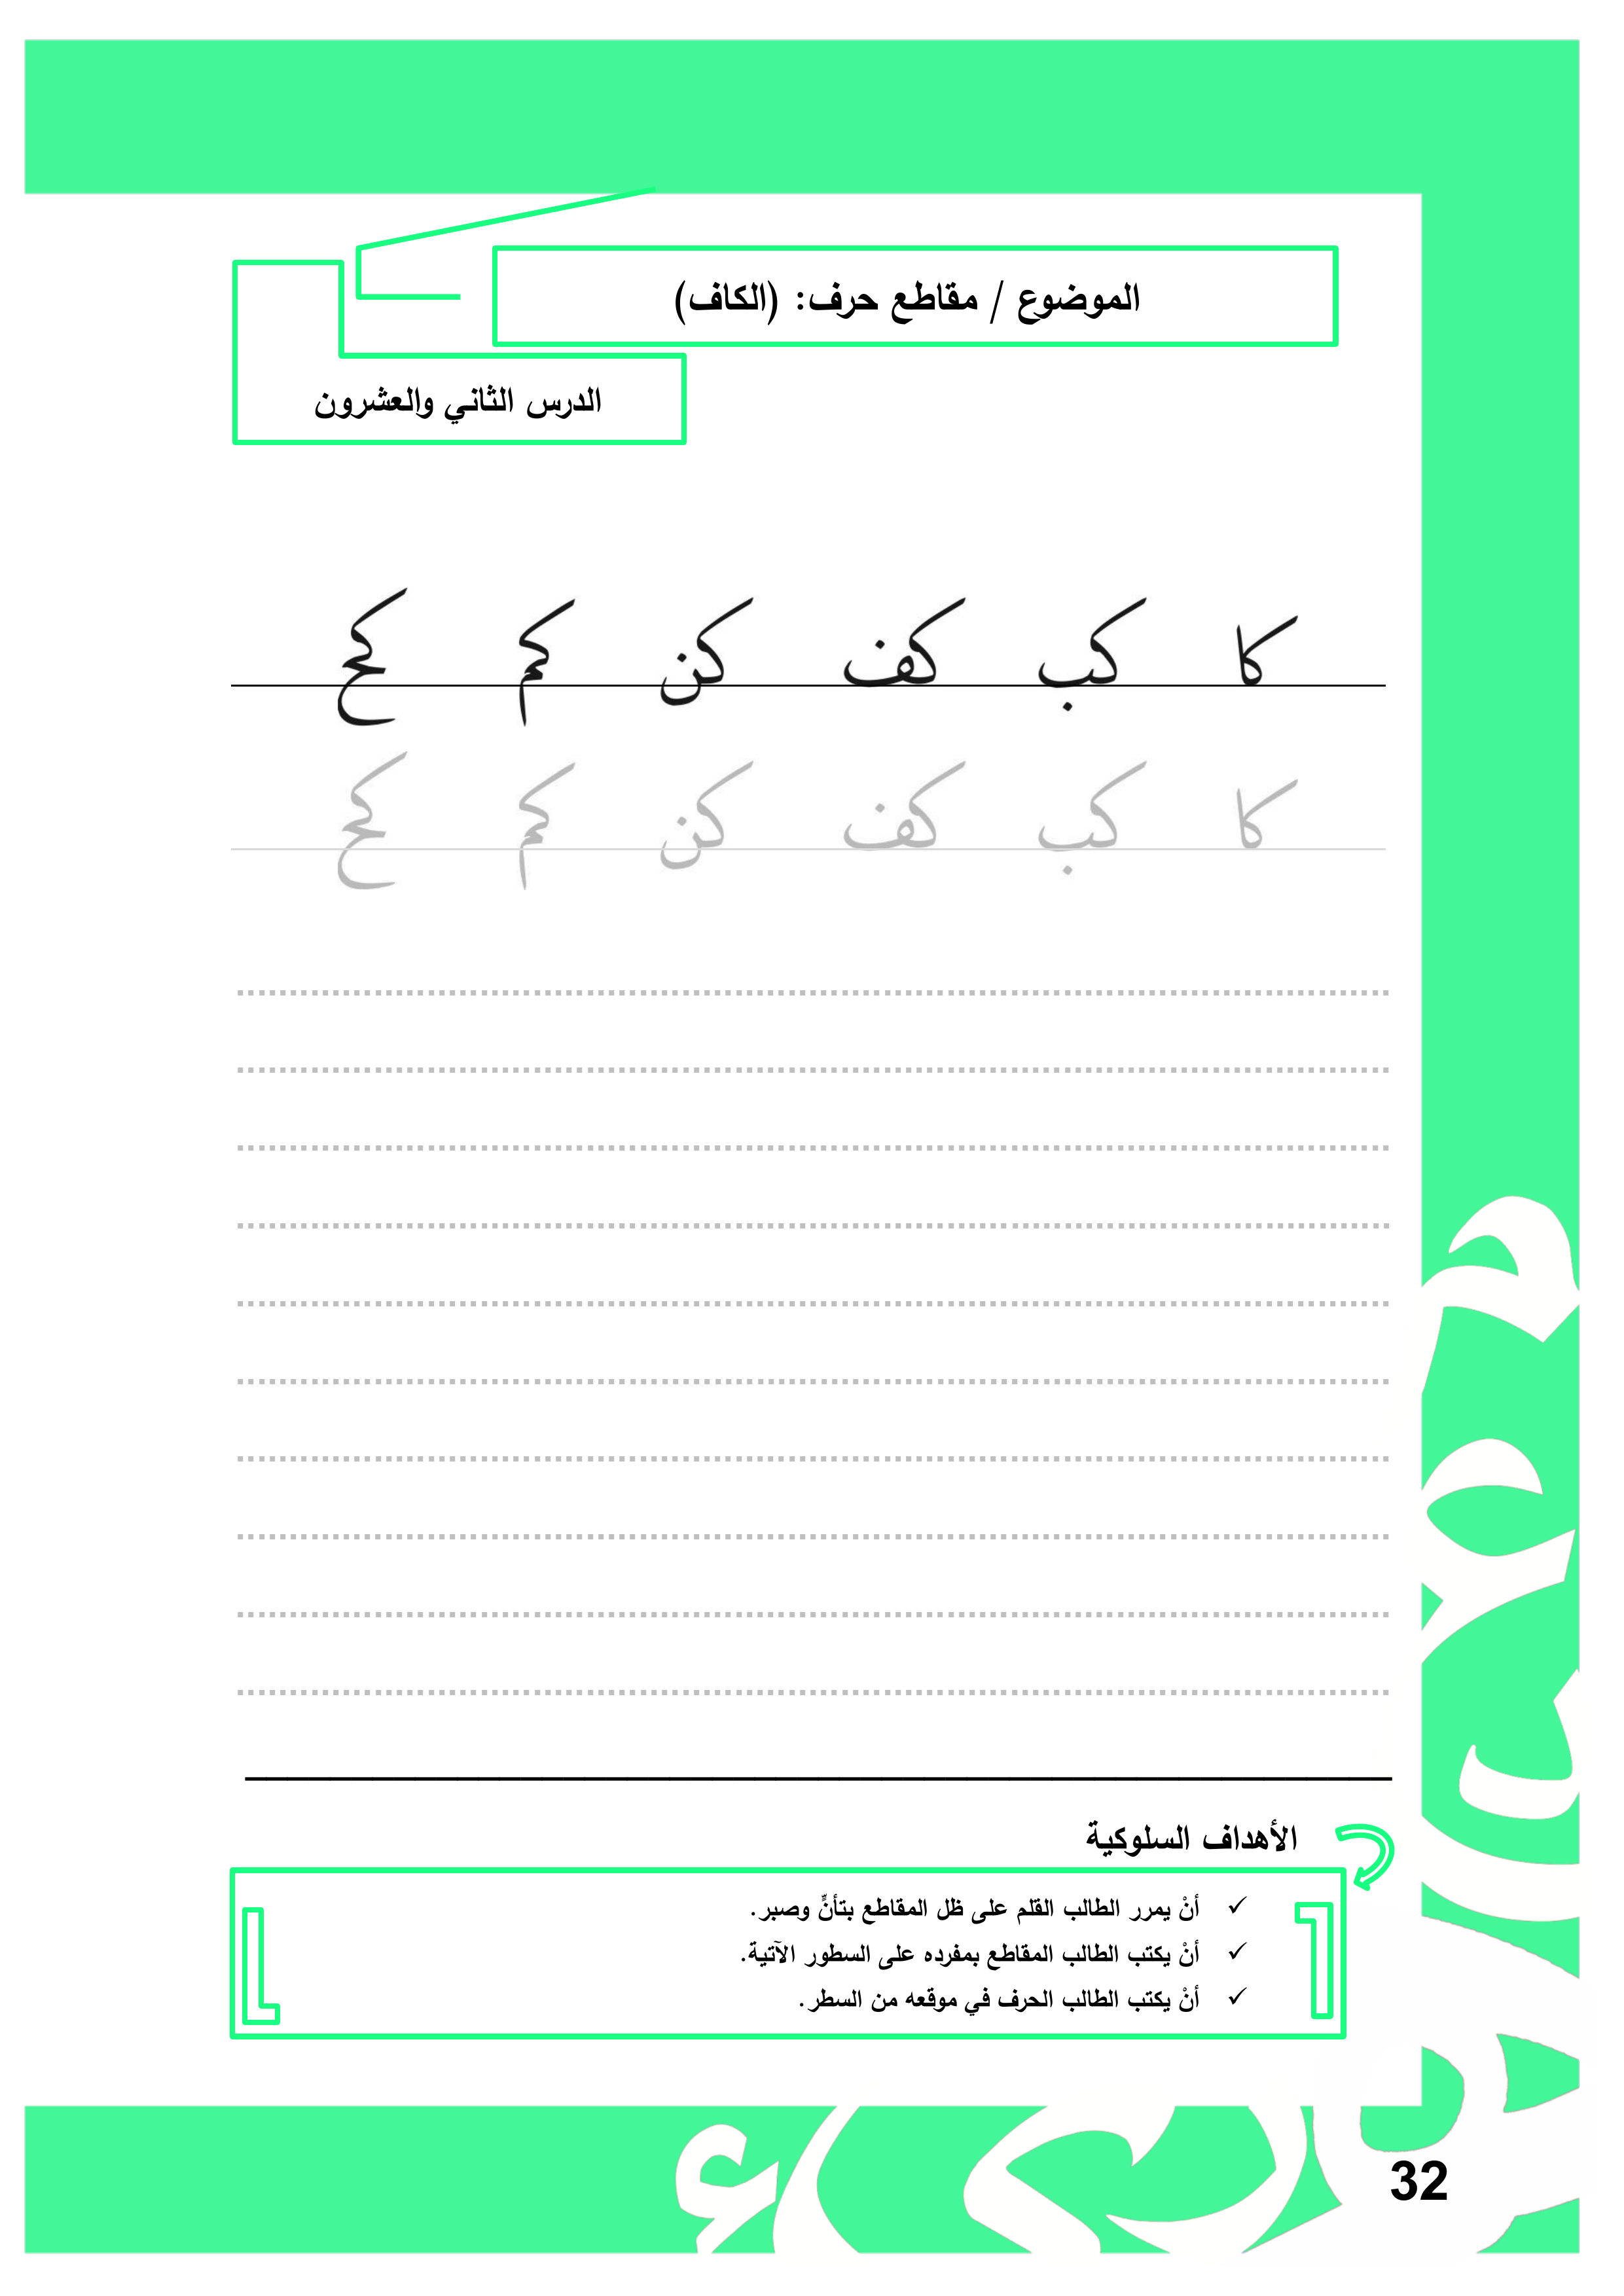 الموضوع / مقاطع حرف: (الكاف)
الدرس الثاني والعشرون
كا كب كف كن كم كح
كا كب كف كن كم كح
الأهداف السلوكية
✓ أنْ يمرر الطالب القلم على ظل المقاطع بتأنٍّ وصبر.
✓ أنْ يكتب الطالب المقاطع بمفرده على السطور الآتية.
✓ أنْ يكتب الطالب الحرف في موقعه من السطر.
32